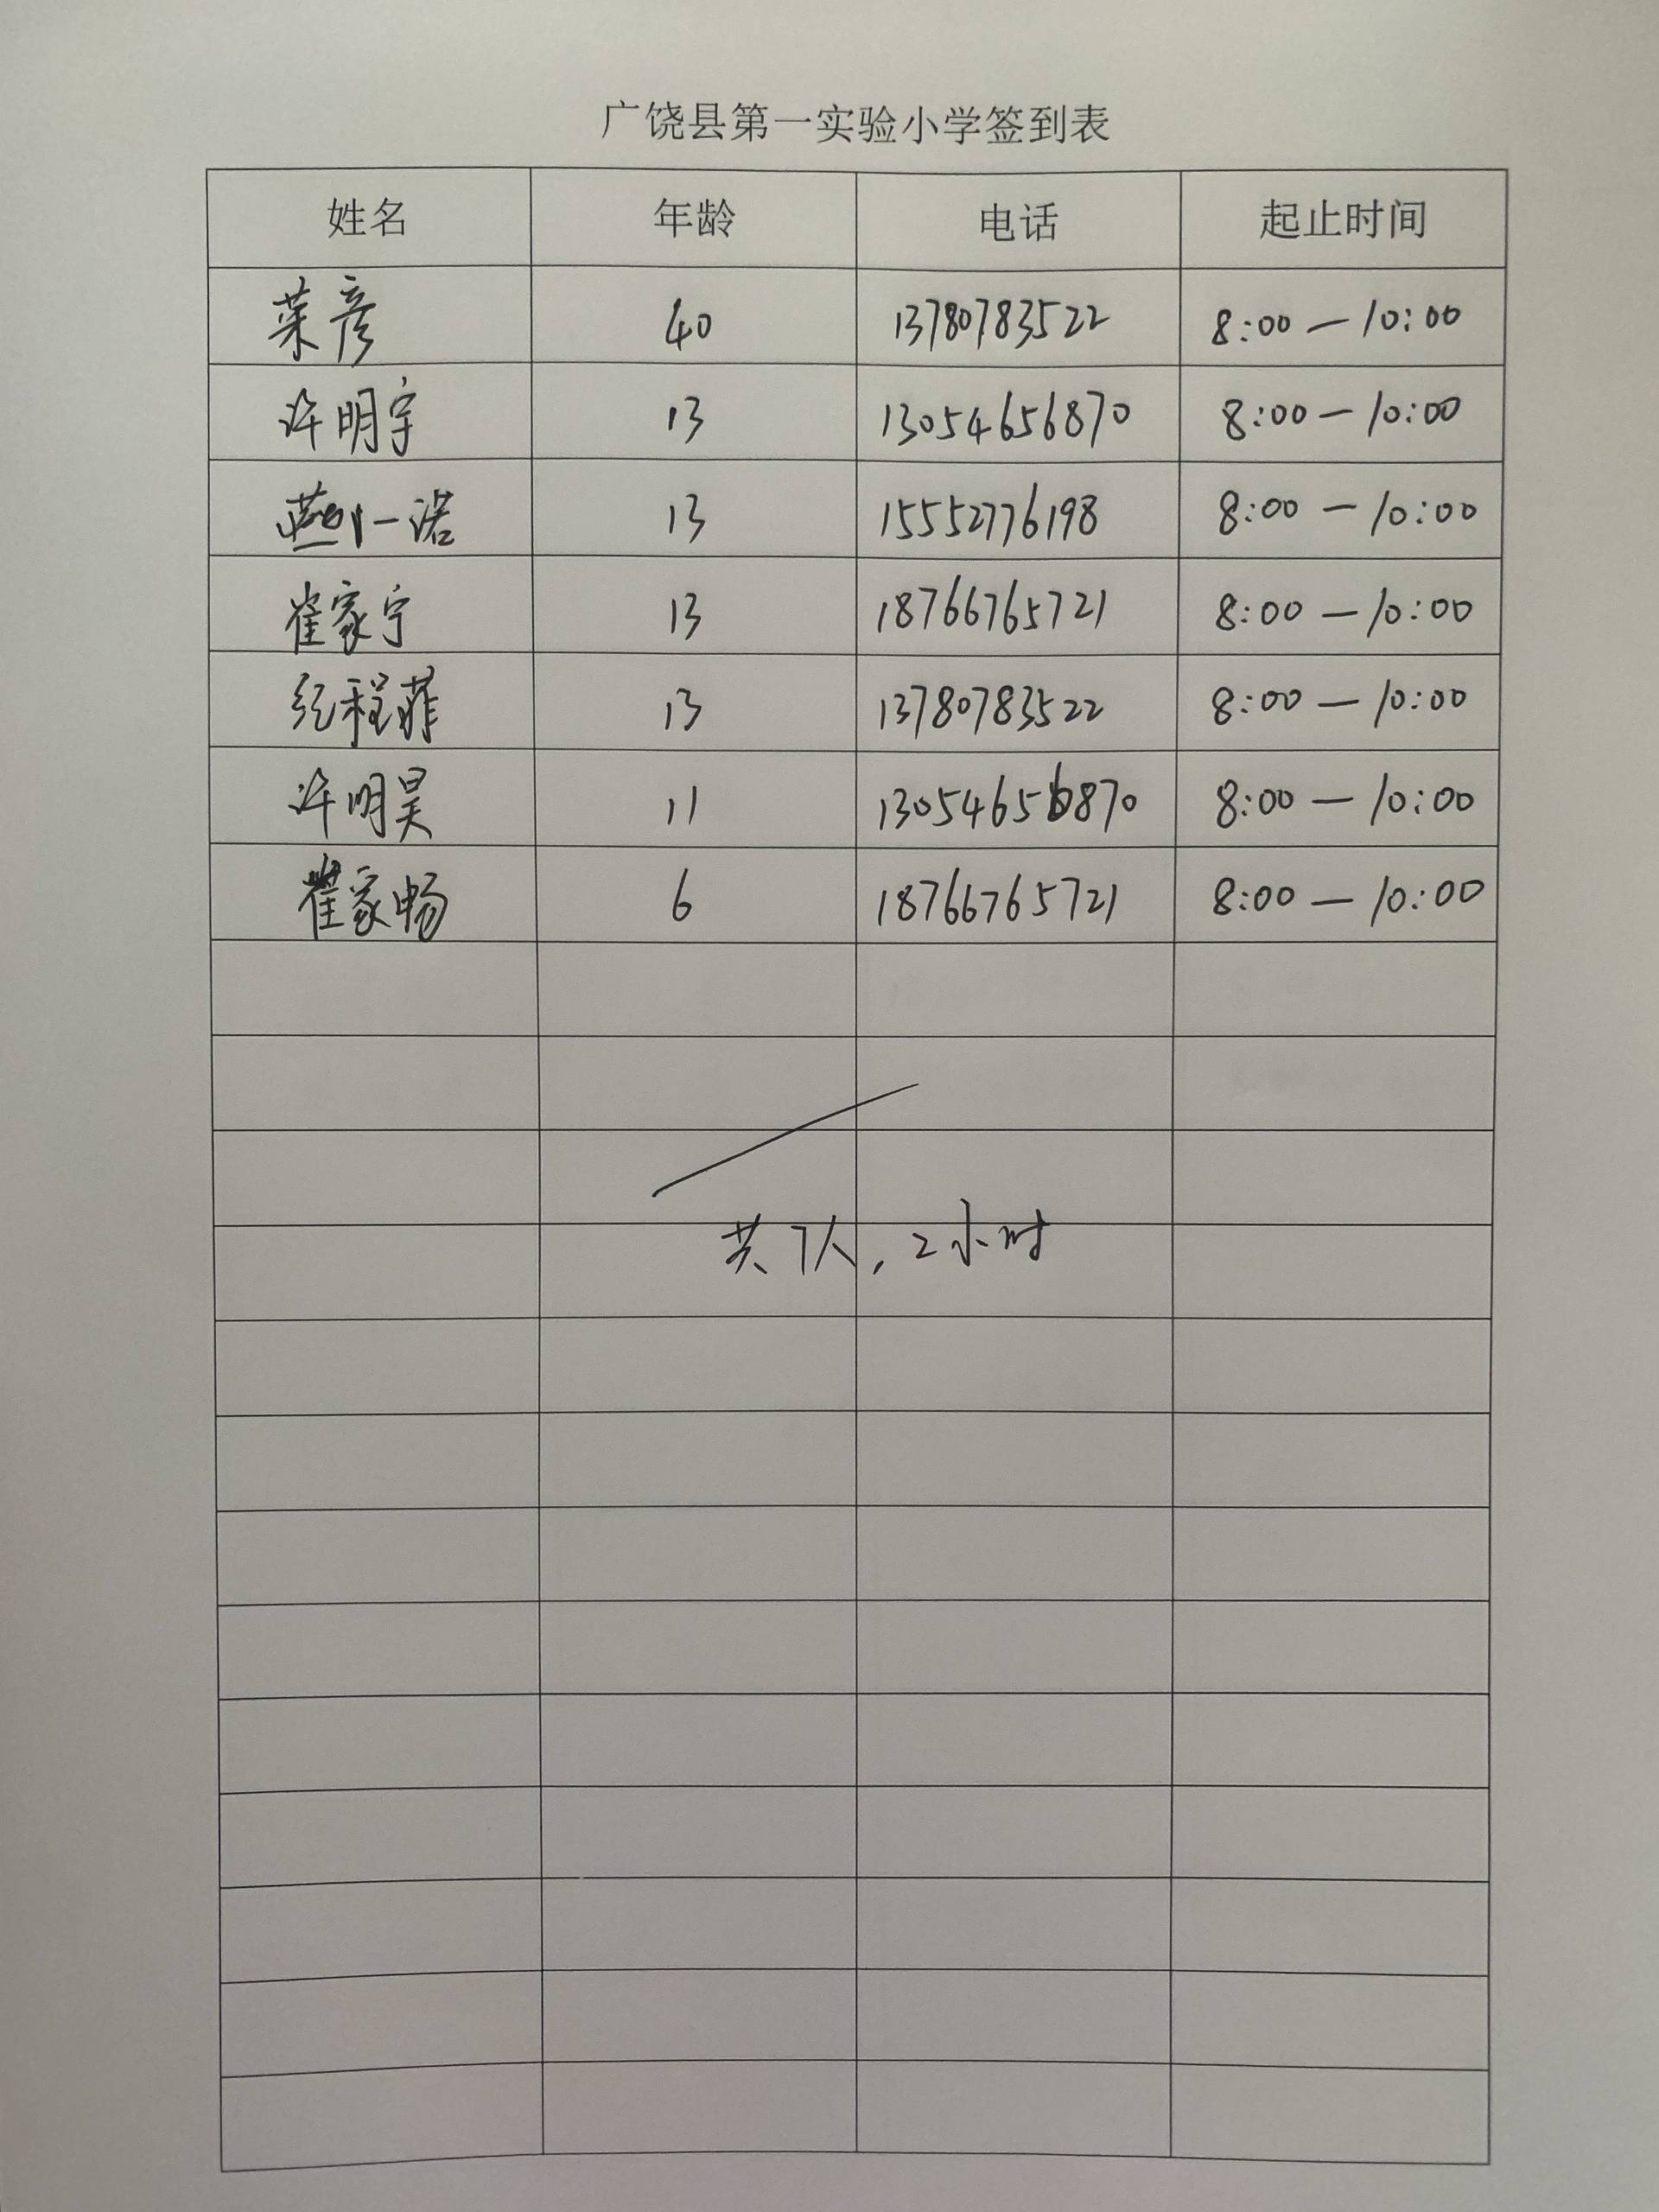 广饶县第一实验小学签到表
姓名 年龄 电话 起止时间
荣彦 40 13780783522 8:00—10:00
许明宇 13 13054656870 8:00—10:00
燕一诺 13 15552776198 8:00—10:00
崔家宁 13 18766765721 8:00—10:00
纪程菲 13 13780783522 8:00—10:00
许明昊 11 13054656870 8:00—10:00
崔家畅 6 18766765721 8:00—10:00
共7人,2小时